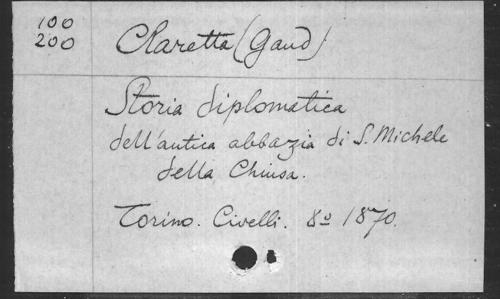 100
200
Claretta (Gaud)
Storia diplomatica
dell'antica abbazia di S. Michele
della Chiusa.
Torino. Civelli. 8º 1870.